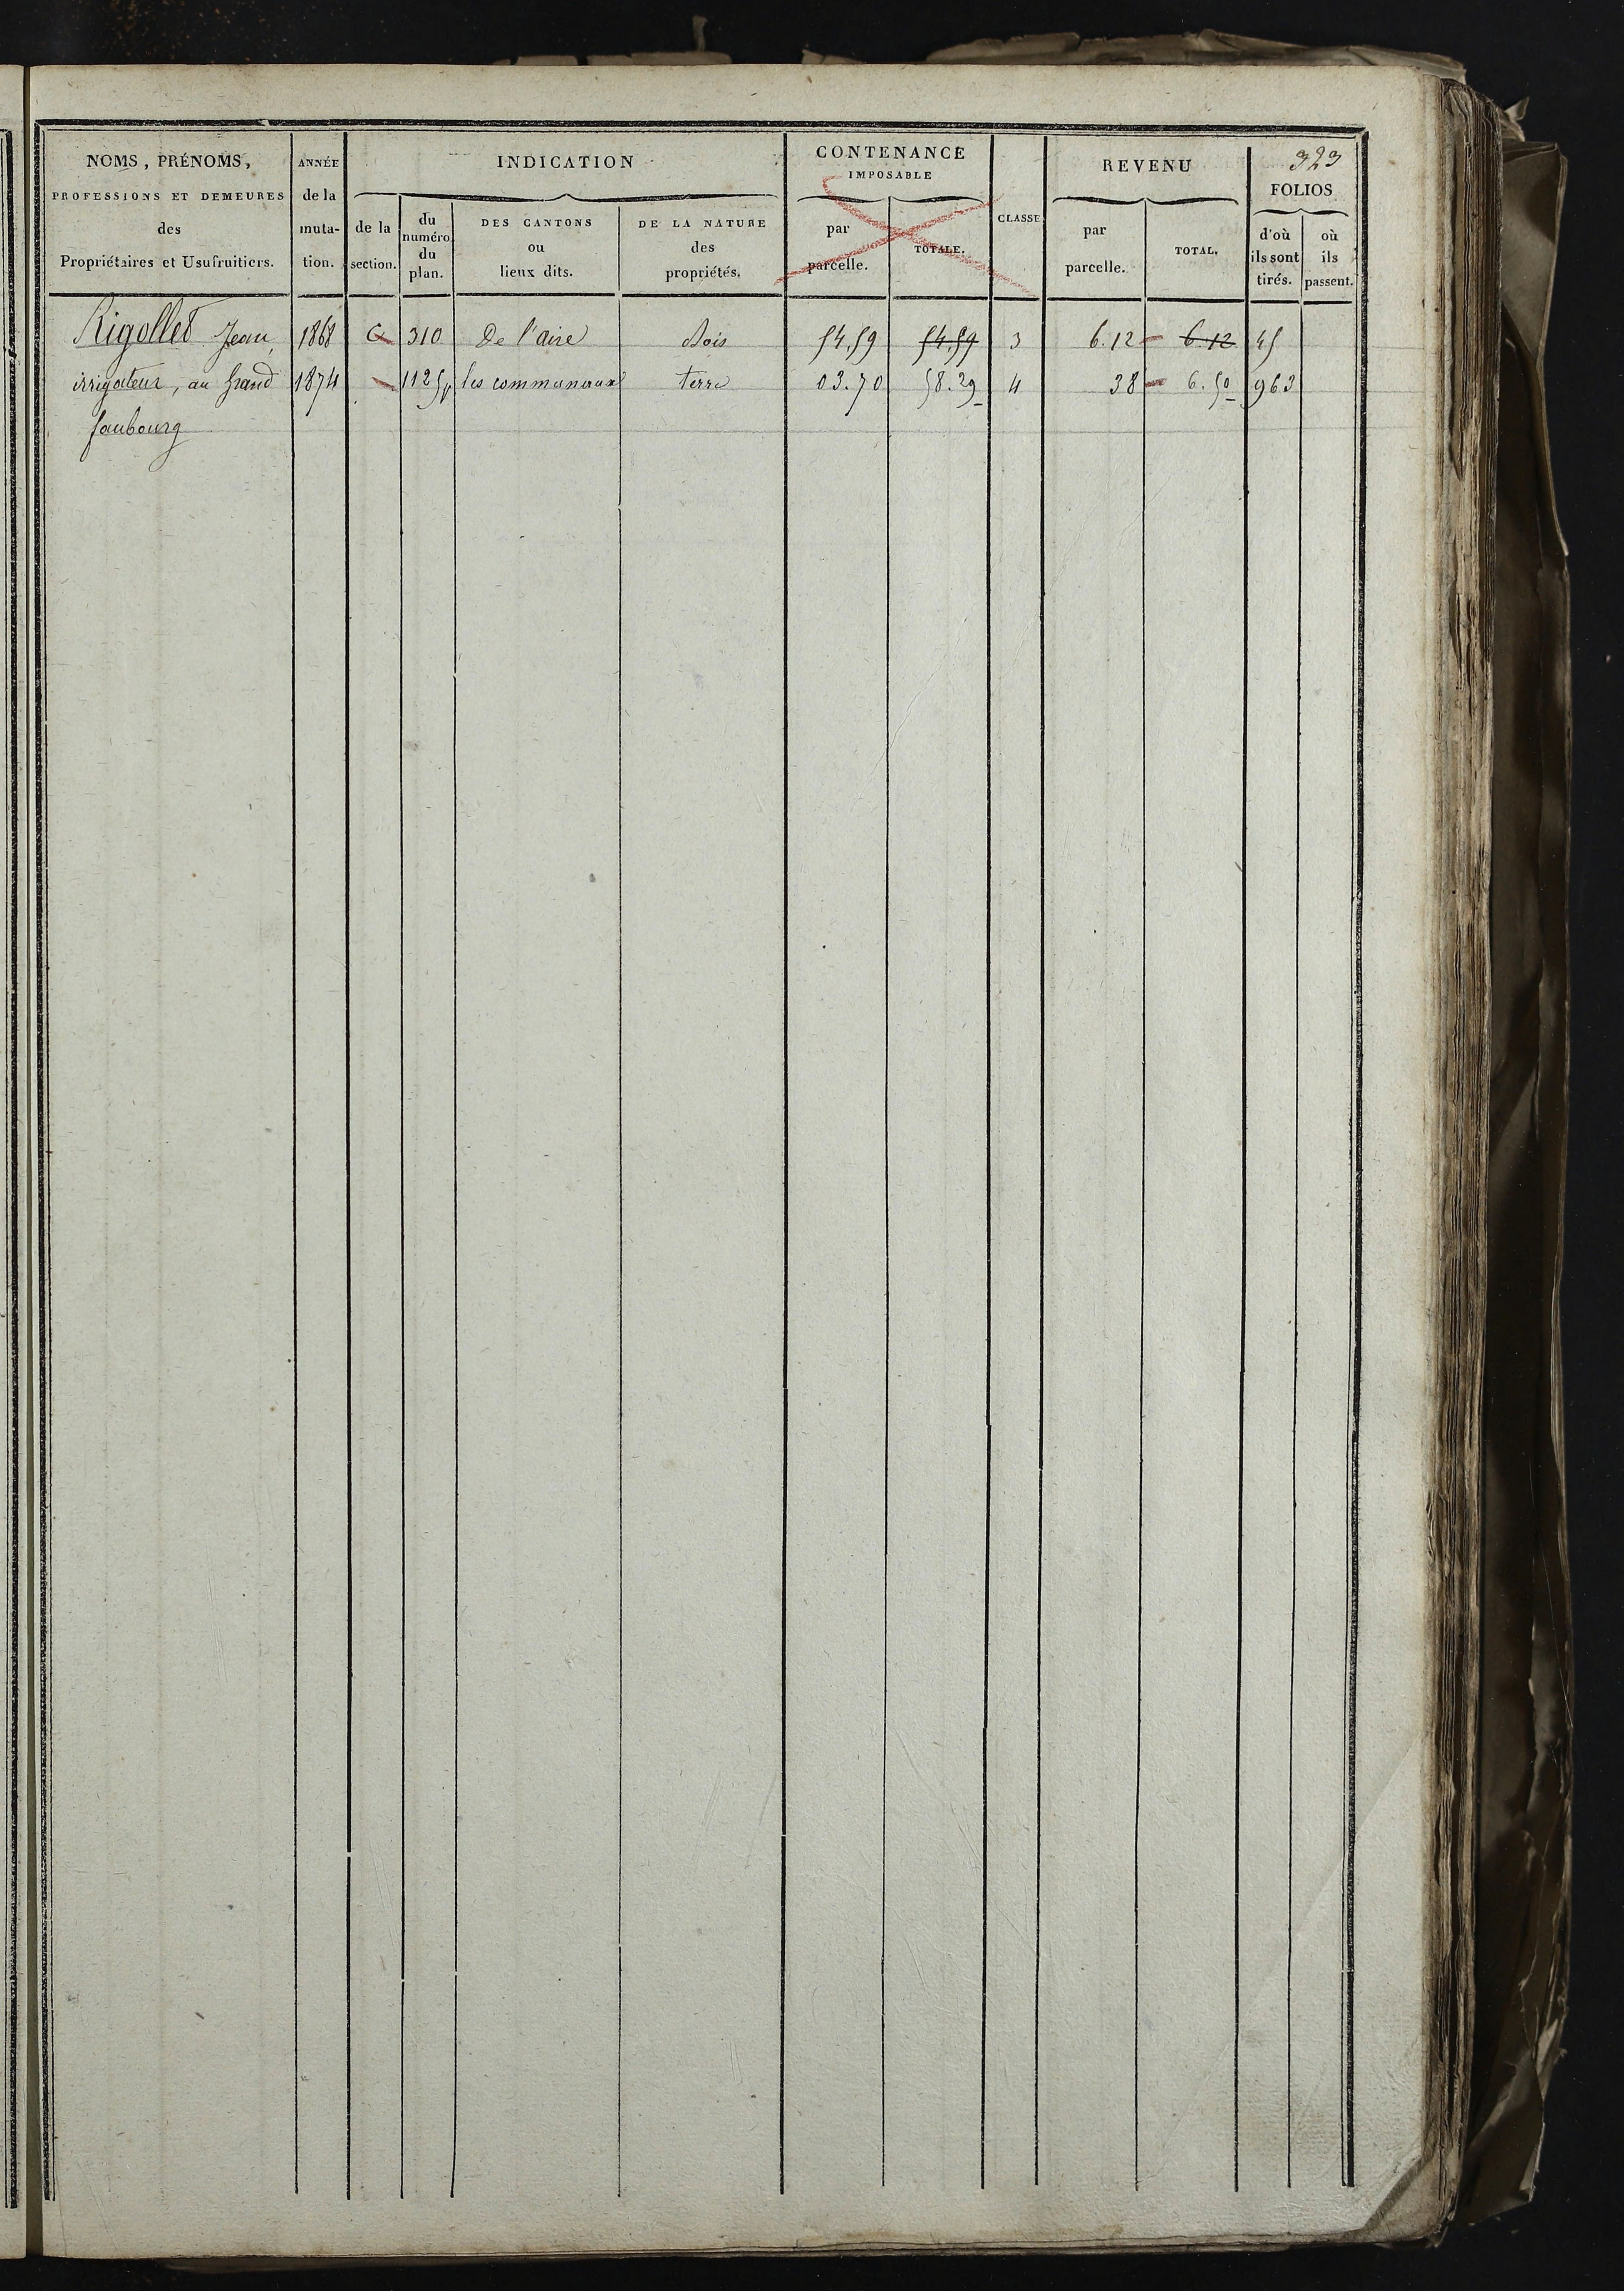 323
NOMS, PRÉNOMS,
PROFESSIONS ET DEMEURES
des
Propriétaires et Usufruitiers.
ANNÉE
de la
muta-
tion.
INDICATION
de la
section.
du
numéro
du
plan.
DES CANTONS
ou
lieux dits.
DE LA NATURE
des
propriétés.
CONTENANCE
IMPOSABLE
par
parcelle.
TOTALE.
CLASSE
REVENU
par
parcelle.
TOTAL.
FOLIOS
d'où
ils sont
tirés.
où
ils
passent.
Rigollet Jean, 1868 G 310 De l'aire Bois 54,59 54,59 3 6.12 6.12 45
irrigateur, au Grand 1874 1125p les communaux terre 03.70 58.29 4 38 6.50 963
faubourg